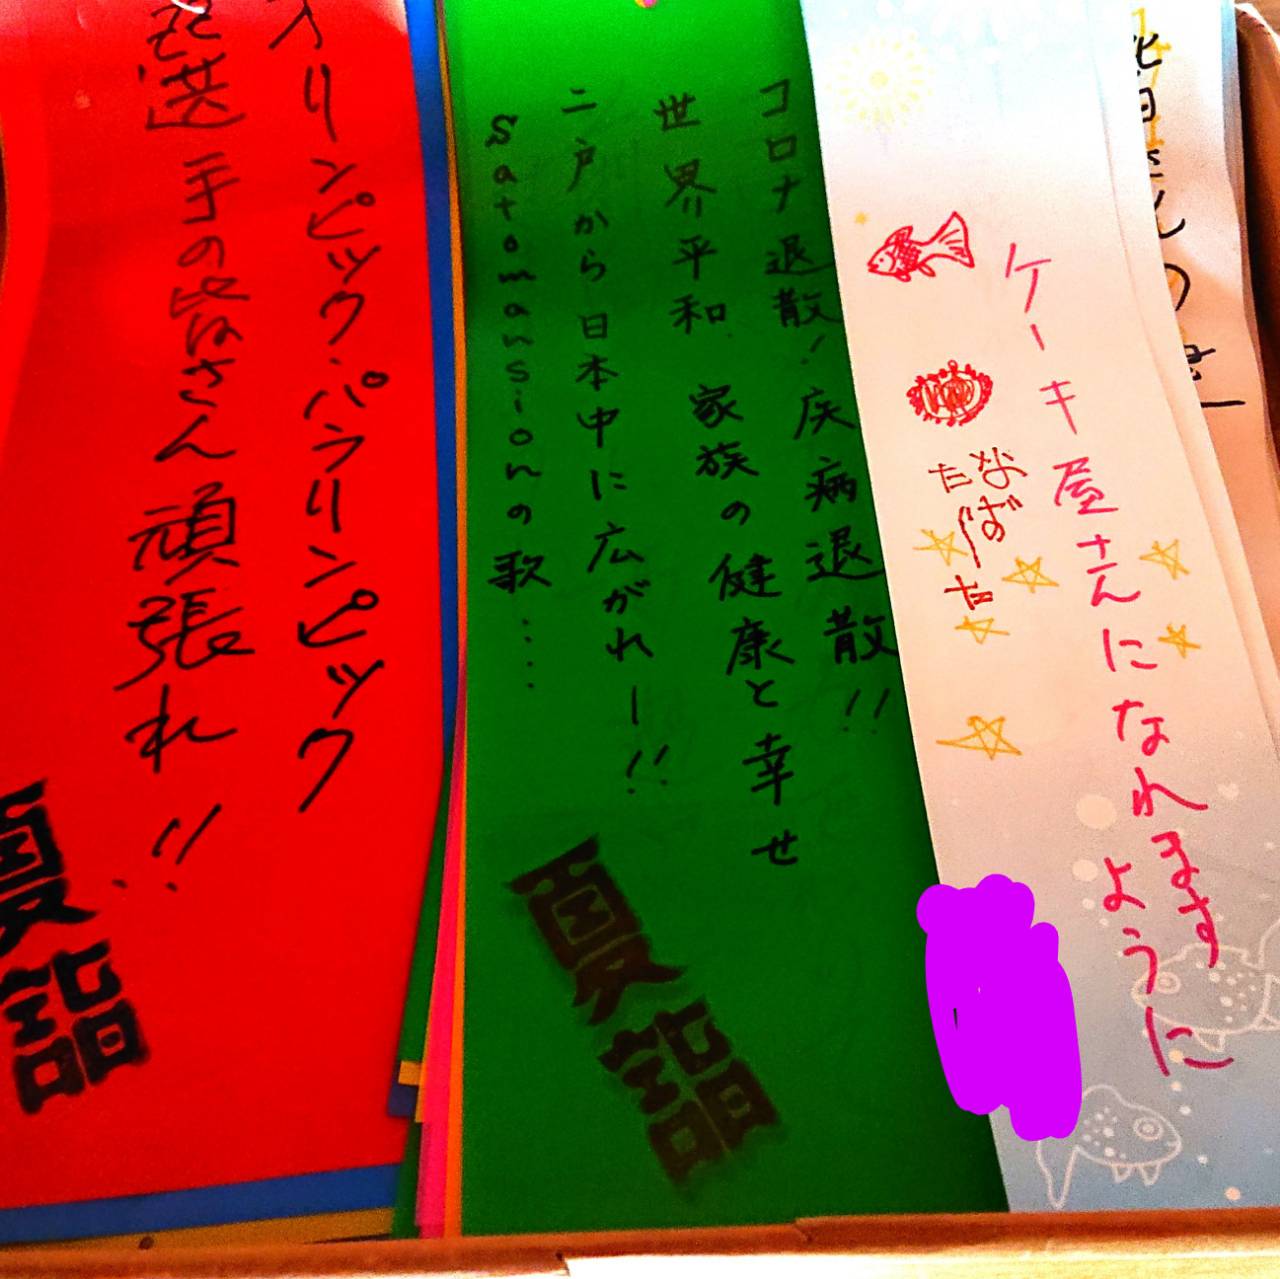 ケーキ屋さんになれます
ように
コロナ退散！疾病退散！！
世界平和 家族の健康と幸せ
二戸から日本中に広がれー！！
Satomansionの歌・・・・
夏詣
オリンピック・パラリンピック
選手の皆さん頑張れ！！
夏詣